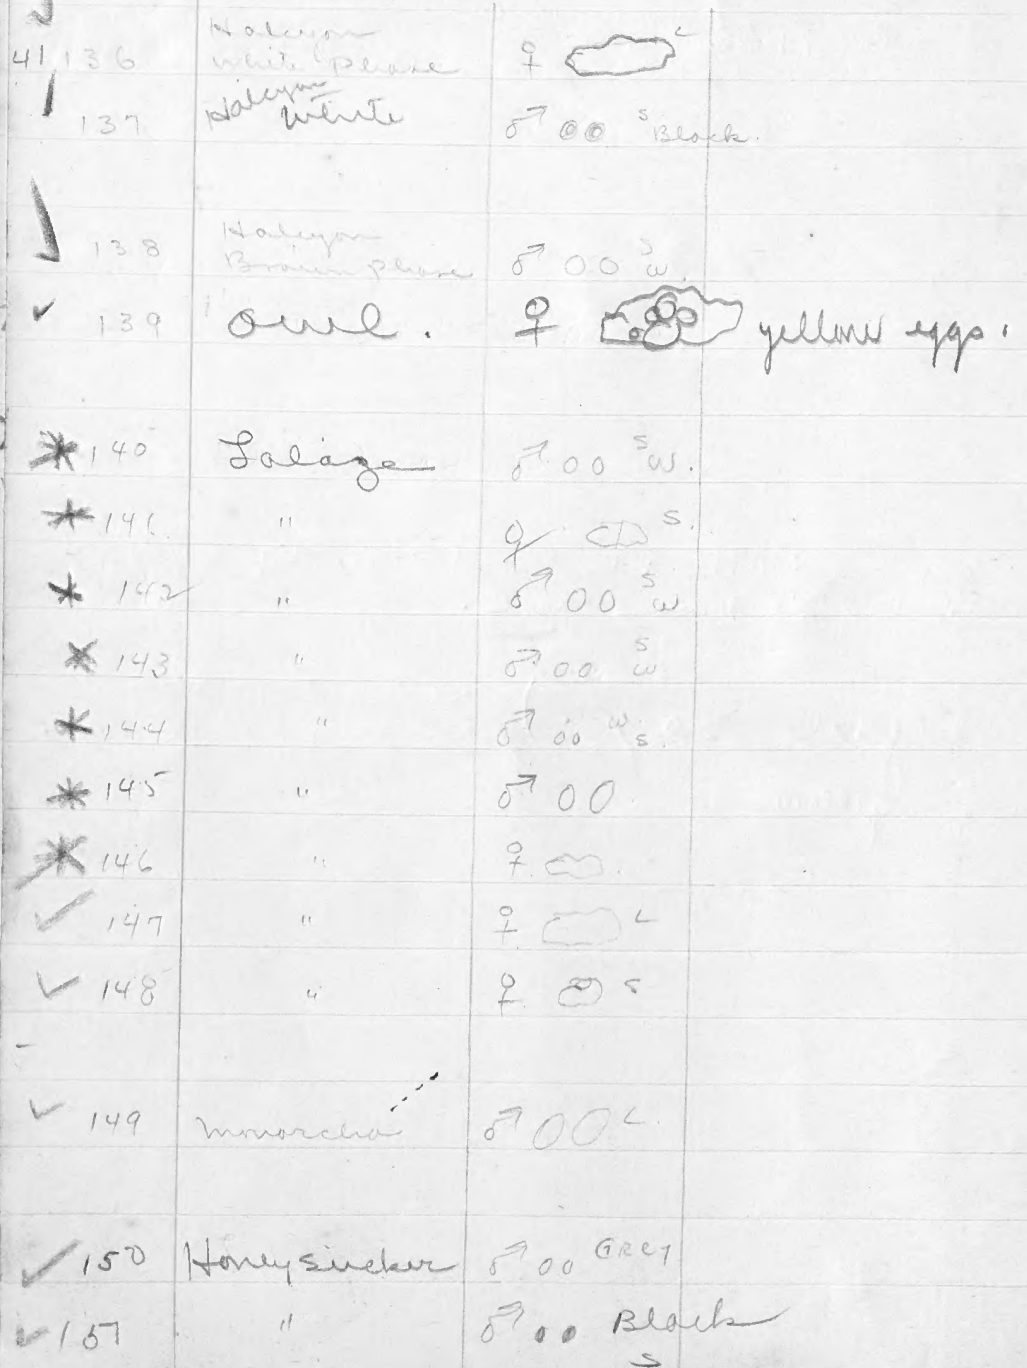 41 136 Halcyon
White phase ♀ L
137 Halcyon
White ♂ S Black.
138 Halcyon
Brown phase ♂ S W.
139 Owl. ♀ yellow eggs.
140 Lalage ♂ S W.
141 " ♀ S.
142 " ♂ S W
143 " ♂ S W
144 " ♂ W S.
145 " ♂
146 " ♀
147 " ♀ L
148 " ♀ S
149 Monarcha ♂ L
150 Honeysucker ♂ Grey
151 " ♂ Black
S